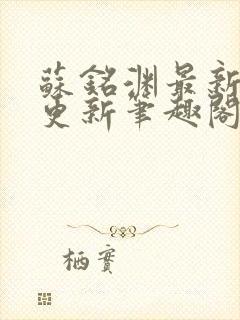 蘇銘淵最新
更新筆趣閣
栖實